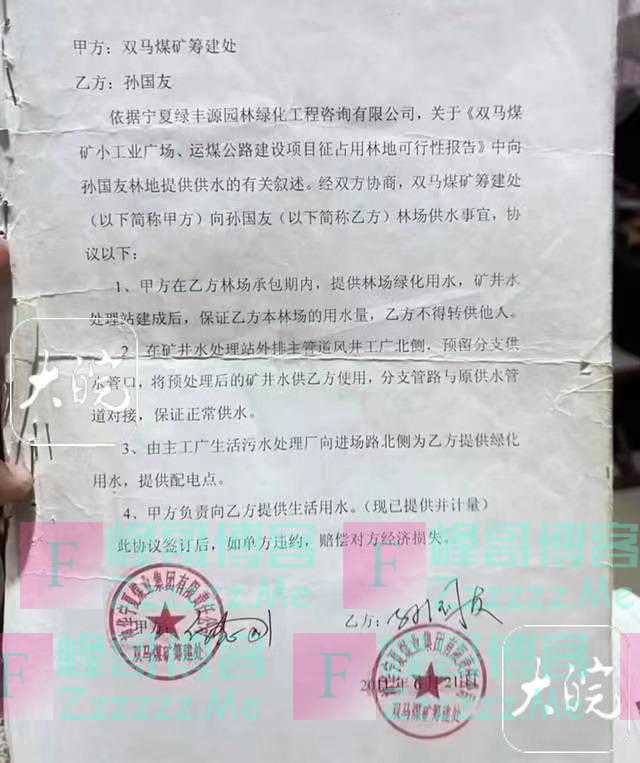 甲方：双马煤矿筹建处
乙方：孙国友
依据宁夏绿丰源园林绿化工程咨询有限公司，关于《双马煤
矿小工业广场、运煤公路建设项目征占用林地可行性报告》中向
孙国友林地提供供水的有关叙述。经双方协商，双马煤矿筹建处
（以下简称甲方）向孙国友（以下简称乙方）林场供水事宜，协
议以下：
1、甲方在乙方林场承包期内，提供林场绿化用水，矿井水
处理站建成后，保证乙方本林场的用水量，乙方不得转供他人。
2、在矿井水处理站外排主管道风井工广北侧，预留分支供
水管口，将预处理后的矿井水供乙方使用，分支管路与原供水管
道对接，保证正常供水。
3、由主工广生活污水处理厂向进场路北侧为乙方提供绿化
用水，提供配电点。
4、甲方负责向乙方提供生活用水。（现已提供并计量）
此协议签订后，如单方违约，赔偿对方经济损失。
甲方：
乙方：孙国友
神华宁夏煤业集团有限责任公司
双马煤矿筹建处
神华宁夏煤业集团有限责任公司
双马煤矿筹建处
月21日
大皖
大皖
F 峰哥博客
Zzzzzz.Me
F 峰哥博客
Zzzzzz.Me